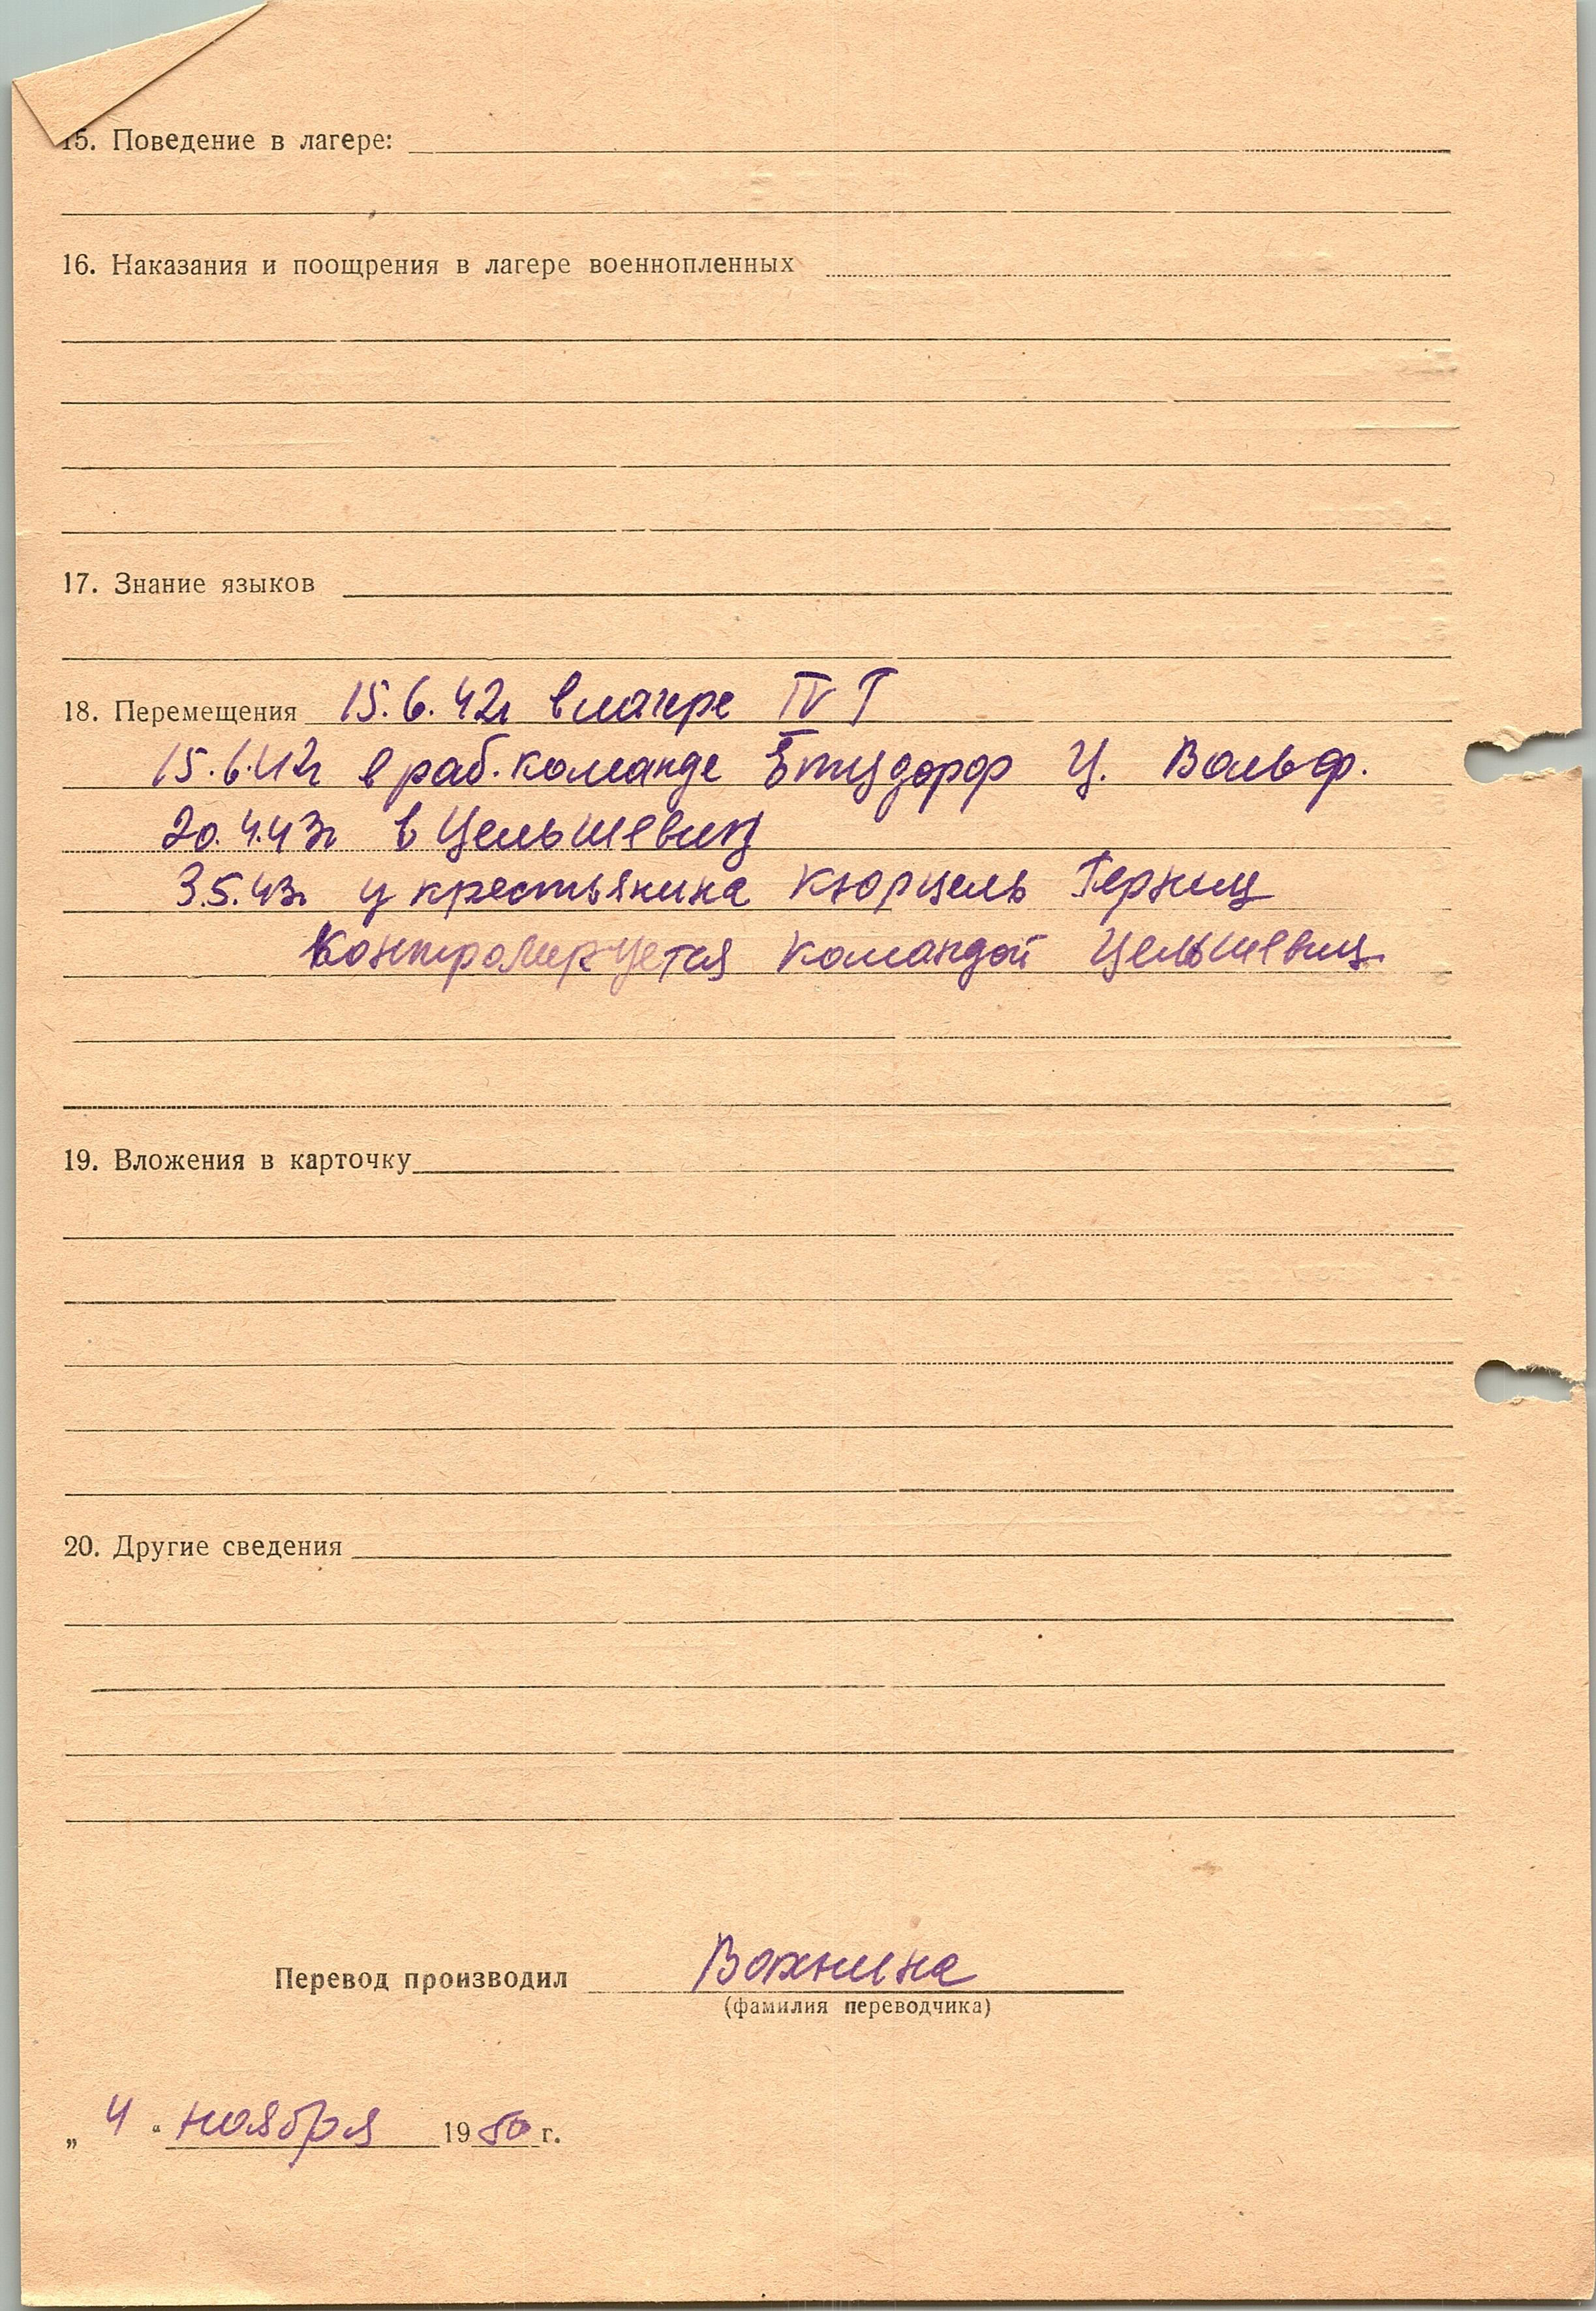 15. Поведение в лагере:
16. Наказания и поощрения в лагере военнопленных
17. Знание языков
18. Перемещения 15.6.42г в лагере IV Г
15.6.42г в раб. команде Ц. Вольф.
20.4.43г в Цельшевиц
3.5.43г у крестьянина Кюрцель Герниц
Контролируется командой Цельшевиц
19. Вложения в карточку
20. Другие сведения
Перевод производил Вахнина
(фамилия переводчика)
„ 4 “ ноября 1950 г.